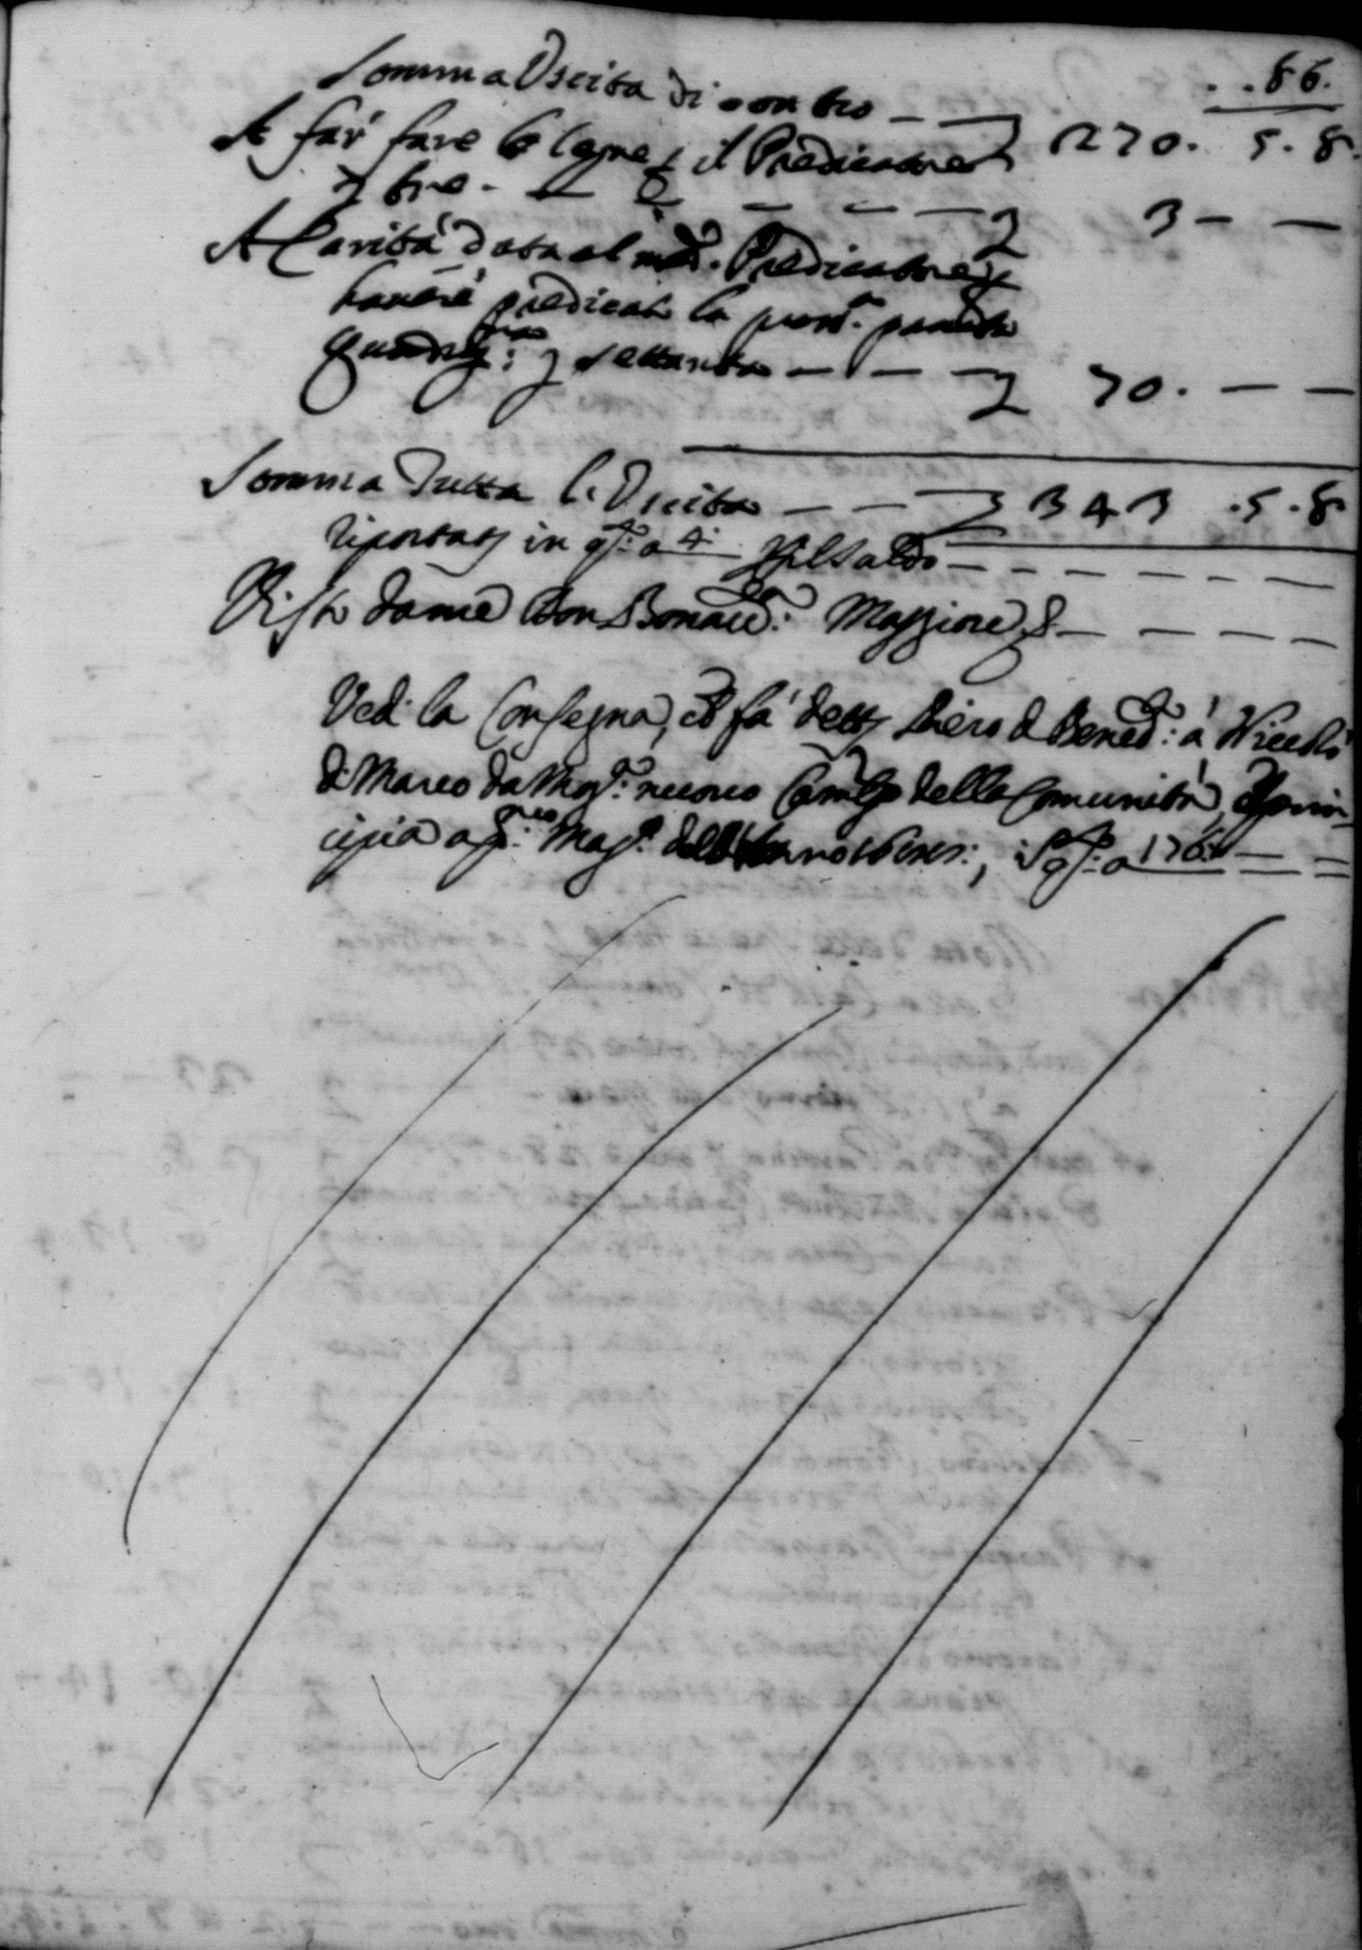 . . 86.
Somma Uscita di contro — — 270. 5. 8.
A far fare le legne p il Predicatore
tre. — — — — 3 — —
A Carità data al med.º Predicatore p
havere predicato la pross.ª passata
Quadrag.ma: settanta — — — 70. — —
Somma Tutta l'Uscita — — 343 . 5 . 8
riportata in q.º: a 4. p il Saldo — — — — — —
Visto da me Don Bonav.ra: Maggiore — — — —
Vedi la Consegna, che fà detto Piero d Bened.º: à Niccolò
di Marco da nuovo Camgo della Comunità, e Prin
cipia a p.mo: Mag.º dell' Anno q.º: a 176: — —